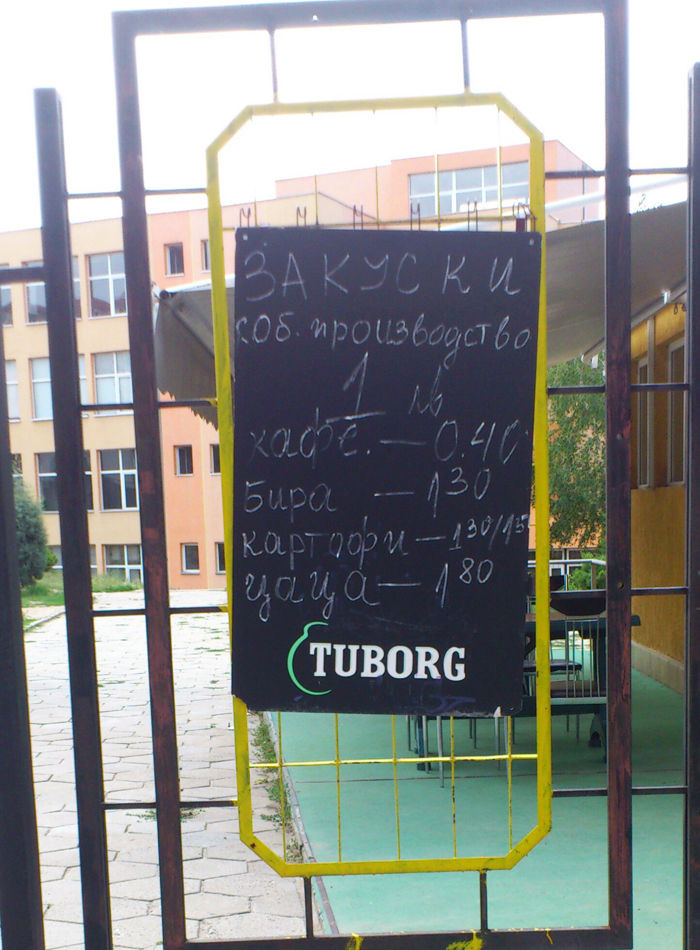 ЗАКУСКИ
соб. производство
1 лв
кафе. — 0.40
бира — 1 30
картофи — 1 30/1 5
цаца — 1 80
TUBORG